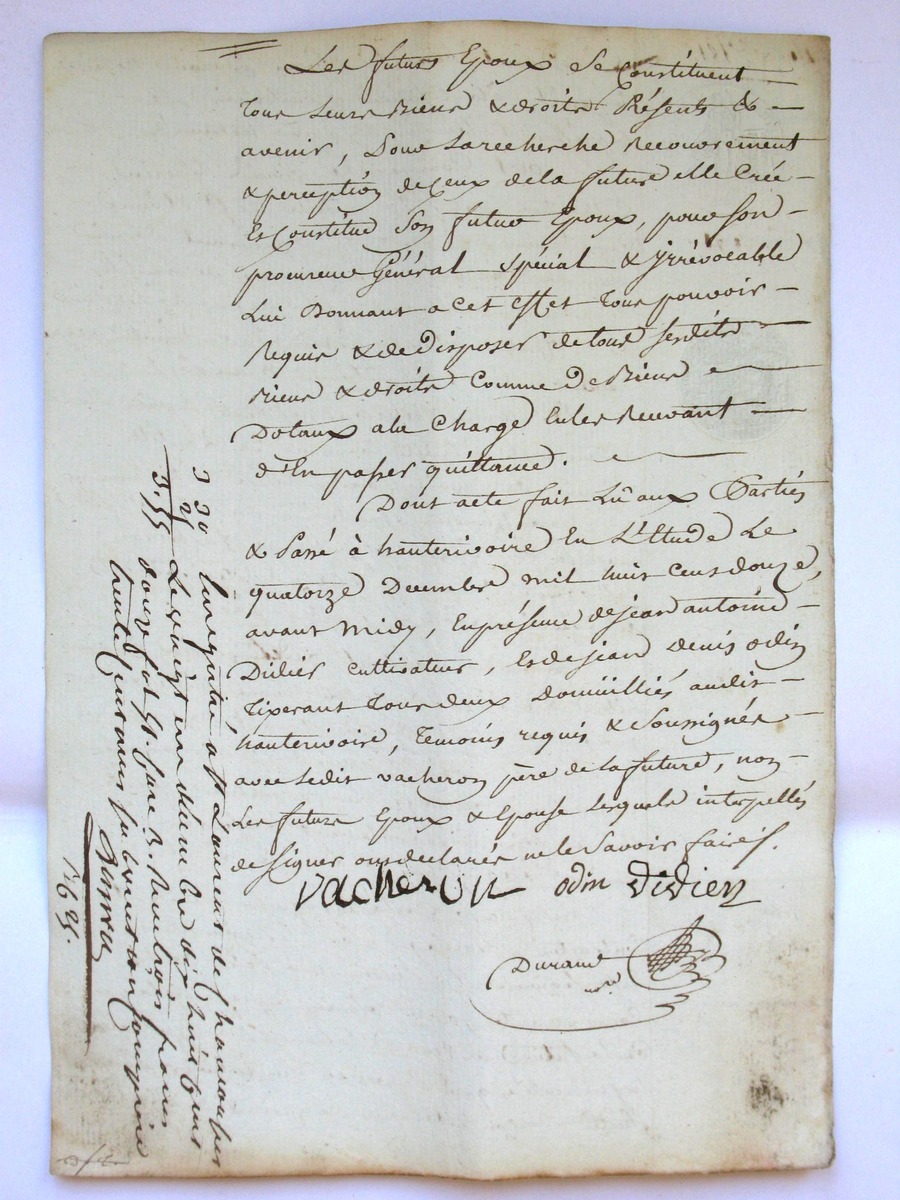 Les futurs Epoux se Constituent
tous leurs Biens & droits Présents &
avenir, Pour la recherche Recouvrement
& perception de Ceux de la future elle Crée
Et Constitue Son futur Epoux, pour Son
procureur Général Spécial & Irrévocable
Lui Donnant a Cet effet tous pouvoirs
Requis & de Disposer de tous Sesdits
Biens & droits Comme De Biens
Dotaux a la Charge En les Recevant
d'En passer quittance.
Dont acte fait Lû aux Parties
& Passé à hauterivoire En L'Etude Le
quatorze Decembre mil huit Cent douze,
avant midy, En présence de jean antoine
Didier cultivateur, Et de jean denis odin
Tixerant tous deux Domiciliés audit
hauterivoire, Temoins requis & Soussignés
avec ledit vacheron père de la future, non
Les futurs Epoux & Epouse Lesquels interpellés
de Signer ont déclarés ne le Savoir faire.
vacheron odin didier
Durand
nore
Enregistré à St Laurent de Chamousset
Le vingt un décembre dix huit cent
douze fol 91. Case 3. Reçu trois francs
trente Centimes subvention comprise
3 30
25
3.55